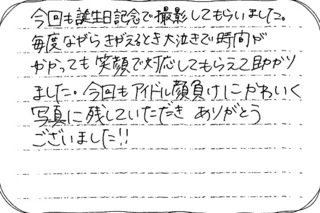 今回も誕生日記念で撮影してもらいました。
毎度ながらきがえるとき大泣きで時間が
かかっても笑顔で対応してもらえて助かり
ました。今回もアイドル顔負けにかわいく
写真に残していただき ありがとう
ございました!!